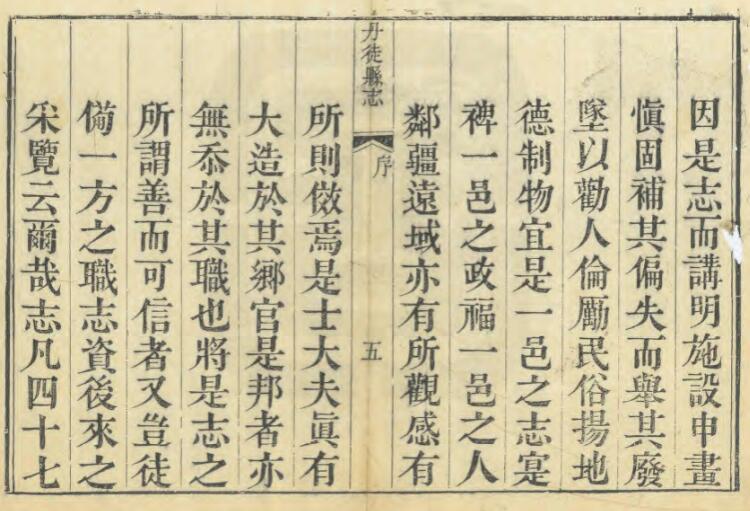 因是志而講明施設申畫
愼固補其偏失而舉其廢
墜以勸人倫勵民俗揚地
德制物宜是一邑之志寔
禆一邑之政福一邑之人
鄰疆遠域亦有所觀感有
丹徒縣志
序
五
所則倣焉是士大夫眞有
大造於其鄉官是邦者亦
無忝於其職也將是志之
所謂善而可信者又豈徒
備一方之職志資後來之
采覽云爾哉志凡四十七